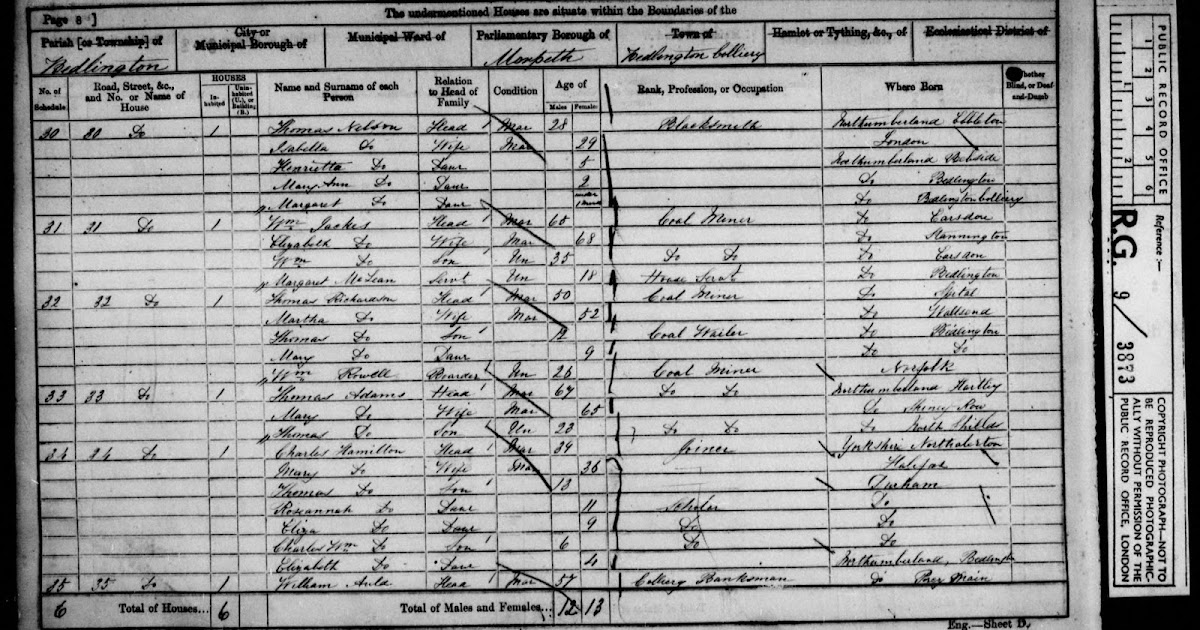 Page 8 ]
The undermentioned Houses are situate within the Boundaries of the
Parish [or Township] of
City or Municipal Borough of
Municipal Ward of
Parliamentary Borough of
Town of
Hamlet or Tything, &c., of
Ecclesiastical District of
Bedlington
Morpeth
Bedlington Colliery
No. of Schedule
Road, Street, &c., and No. or Name of House
HOUSES
Inhabited
Uninhabited (U.), or Building (B.)
Name and Surname of each Person
Relation to Head of Family
Condition
Age of
Males
Females
Rank, Profession, or Occupation
Where Born
Whether Blind, or Deaf-and-Dumb
30 30 Do 1 Thomas Nelson Head Mar 28 Blacksmith Northumberland
Isabella Do Wife Mar 29 London
Henrietta Do Daur 5 Northumberland Bebside
Mary Ann Do Daur 2 Do Bedlington
Margaret Do Daur Do Bedlington Colliery
31 31 Do 1 Wm Head Mar 65 Coal Miner Do Earsdon
Elizabeth Do Wife Mar 68 Do Stannington
Wm Do Son Un 35 Do Do Do Earsdon
Margaret McLean Servt Un 18 House Servt Do Bedlington
32 32 Do 1 Thomas Richardson Head Mar 50 Coal Miner Do
Martha Do Wife Mar 52 Do Wallsend
Thomas Do Son 12 Coal Wailer Do Bedlington
Mary Do Daur 9 Do Do
Wm Rowell Boarder Un 26 Coal Miner Norfolk
33 33 Do 1 Thomas Adams Head Mar 67 Do Do Northumberland Hartley
Mary Do Wife Mar 65 Do Shiney Row
Thomas Do Son Un 23 Do Do Do North Shields
34 34 Do 1 Charles Hamilton Head Mar 39 Joiner Yorkshire Northalerton
Mary Do Wife Mar 36 Halifax
Thomas Do Son 13 Durham
Roseannah Do Daur 11 Scholar Do
Eliza Do Daur 9 Do Do
Charles Wm Do Son 6 Do Do
Elizabeth Do Daur 4 Northumberland, Bedlington
35 35 Do 1 William Auld Head Mar 57 Colliery Banksman Do
6 Total of Houses... 6 Total of Males and Females... 12 13
Eng.—Sheet D.
PUBLIC RECORD OFFICE
1 2 3 4 5 6
1 2
Reference:—
R.G. 9/3873
COPYRIGHT PHOTOGRAPH—NOT TO BE REPRODUCED PHOTOGRAPHICALLY WITHOUT PERMISSION OF THE PUBLIC RECORD OFFICE, LONDON